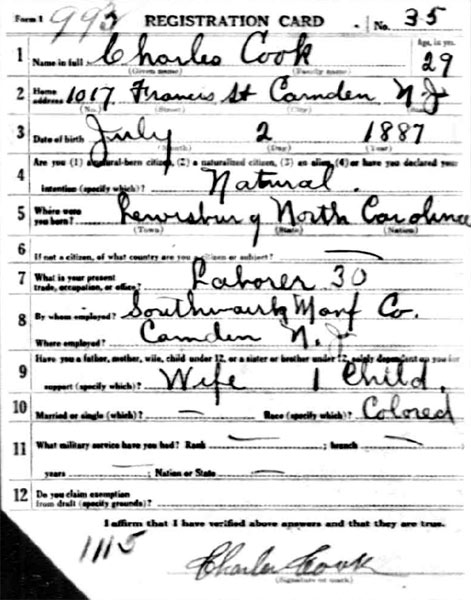 Form 1 993 REGISTRATION CARD No. 35
1 Name in full Charles Cook Age, in yrs. 29
(Given name) (Family name)
2 Home address 1017 Francis St Camden N J
(No.) (Street) (City) (State)
3 Date of birth July 2 1887
(Month) (Day) (Year)
4 Are you (1) a natural-born citizen, (2) a naturalized citizen, (3) an alien, (4) or have you declared your
intention (specify which)? Natural.
5 Where were you born? Lewisburg North Carolina
(Town) (State) (Nation)
6 If not a citizen, of what country are you a citizen or subject? —
7 What is your present trade, occupation, or office? Laborer 30
8 By whom employed? Southwark Manf Co.
Where employed? Camden N. J
9 Have you a father, mother, wife, child under 12, or a sister or brother under 12, solely dependent on you for
support (specify which)? Wife 1 Child.
10 Married or single (which)? — Race (specify which)? Colored
11 What military service have you had? Rank — ; branch —
years — ; Nation or State —
12 Do you claim exemption from draft (specify grounds)?
I affirm that I have verified above answers and that they are true.
1115
Charles Cook
(Signature or mark)